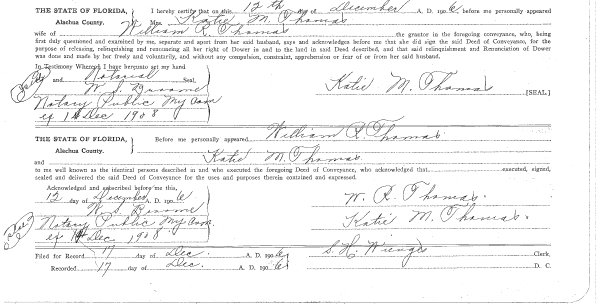 THE STATE OF FLORIDA, I hereby certify that on this 12th day of December A. D. 190 6 before me personally appeared
Alachua County. Mrs. Katie M. Thomas
wife of William R. Thomas the grantor in the foregoing conveyance, who, being
first duly questioned and examined by me, separate and apart from her said husband, says and acknowledges before me that she did sign the said Deed of Conveyance, for the
purpose of releasing, relinquishing and renouncing all her right of Dower in and to the land in said Deed described, and that said relinquishment and Renunciation of Dower
was done and made by her freely and voluntarily, and without any compulsion, constraint, apprehension or fear of or from her said husband.
In Testimony Whereof, I have hereunto set my hand
and Notarial Seal,
W. S. Broome Katie M. Thomas [SEAL]
Notary Public My Com
ex 1st Dec 1908
THE STATE OF FLORIDA, Before me personally appeared William R. Thomas
Alachua County.
and Katie M. Thomas
to me well known as the identical persons described in and who executed the foregoing Deed of Conveyance, who acknowledged that executed, signed,
sealed and delivered the said Deed of Conveyance for the uses and purposes therein contained and expressed.
Acknowledged and subscribed before me this,
12 day of December A. D. 190 6 W. R. Thomas.
W. S. Broome
Notary Public My Com Katie M. Thomas.
ex 1st Dec. 1908
Filed for Record 17 day of Dec. A. D. 190 6 S. H. Wienges Clerk,
Recorded 17 day of Dec. A. D. 190 6 D. C.